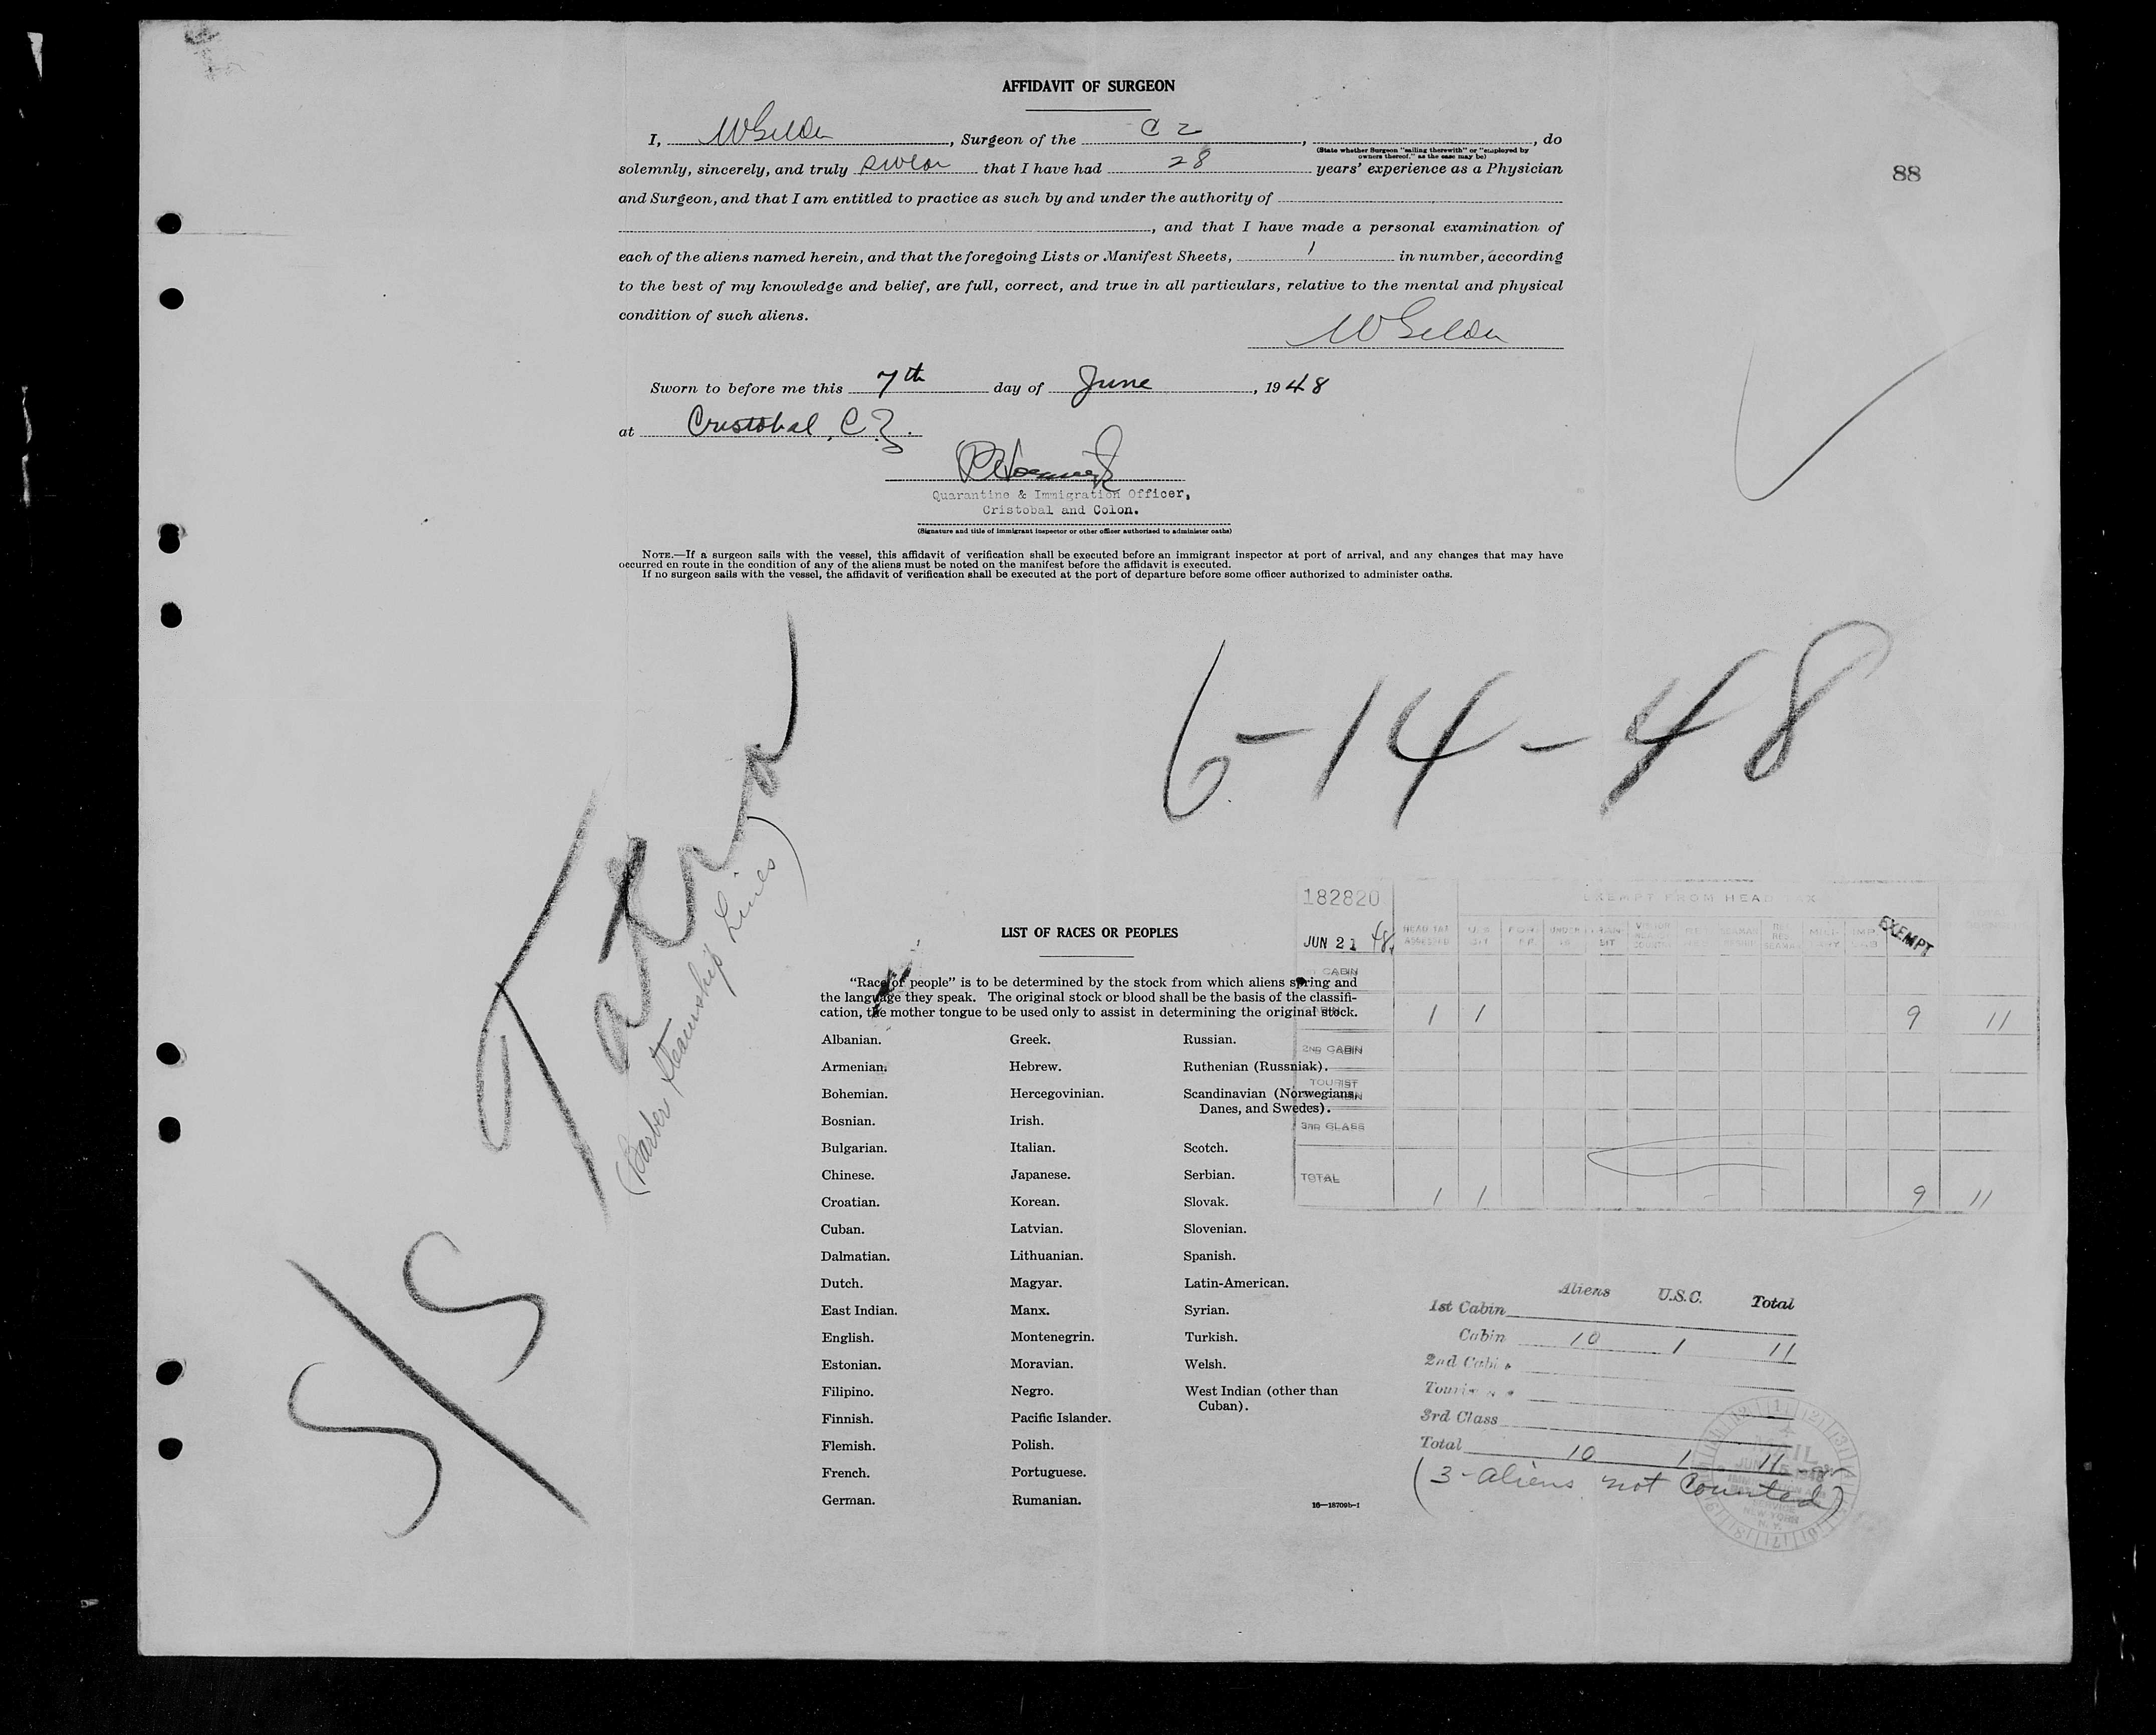 AFFIDAVIT OF SURGEON
88
I, , Surgeon of the C Z , , do
(State whether Surgeon "sailing therewith" or "employed by
owners thereof," as the case may be)
solemnly, sincerely, and truly swear that I have had 28 years' experience as a Physician
and Surgeon, and that I am entitled to practice as such by and under the authority of
, and that I have made a personal examination of
each of the aliens named herein, and that the foregoing Lists or Manifest Sheets, 1 in number, according
to the best of my knowledge and belief, are full, correct, and true in all particulars, relative to the mental and physical
condition of such aliens.
Sworn to before me this 7th day of June , 1948
at Cristobal, C.Z.
Quarantine & Immigration Officer,
Cristobal and Colon.
(Signature and title of immigrant inspector or other officer authorized to administer oaths)
NOTE.—If a surgeon sails with the vessel, this affidavit of verification shall be executed before an immigrant inspector at port of arrival, and any changes that may have
occurred en route in the condition of any of the aliens must be noted on the manifest before the affidavit is executed.
If no surgeon sails with the vessel, the affidavit of verification shall be executed at the port of departure before some officer authorized to administer oaths.
6-14-48
S/S
(Barber Steamship Lines)
LIST OF RACES OR PEOPLES
"Race or people" is to be determined by the stock from which aliens spring and
the language they speak. The original stock or blood shall be the basis of the classifi-
cation, the mother tongue to be used only to assist in determining the original stock.
Albanian.
Armenian.
Bohemian.
Bosnian.
Bulgarian.
Chinese.
Croatian.
Cuban.
Dalmatian.
Dutch.
East Indian.
English.
Estonian.
Filipino.
Finnish.
Flemish.
French.
German.
Greek.
Hebrew.
Hercegovinian.
Irish.
Italian.
Japanese.
Korean.
Latvian.
Lithuanian.
Magyar.
Manx.
Montenegrin.
Moravian.
Negro.
Pacific Islander.
Polish.
Portuguese.
Rumanian.
Russian.
Ruthenian (Russniak).
Scandinavian (Norwegians,
Danes, and Swedes).
Scotch.
Serbian.
Slovak.
Slovenian.
Spanish.
Latin-American.
Syrian.
Turkish.
Welsh.
West Indian (other than
Cuban).
16—18709b-1
182820
EXEMPT FROM HEAD TAX
JUN 21 48
HEAD TAX ASSESSED
EXEMPT
CABIN
1 1 9 11
2ND CABIN
TOURIST
3RD CLASS
TOTAL 1 1 9 11
Aliens U.S.C. Total
1st Cabin
Cabin 10 1 11
2nd Cabin
Tourist
3rd Class
Total 10 1 11
(3-aliens not Counted)
MAIL
JUN 15 1948
NEW YORK
N. Y.